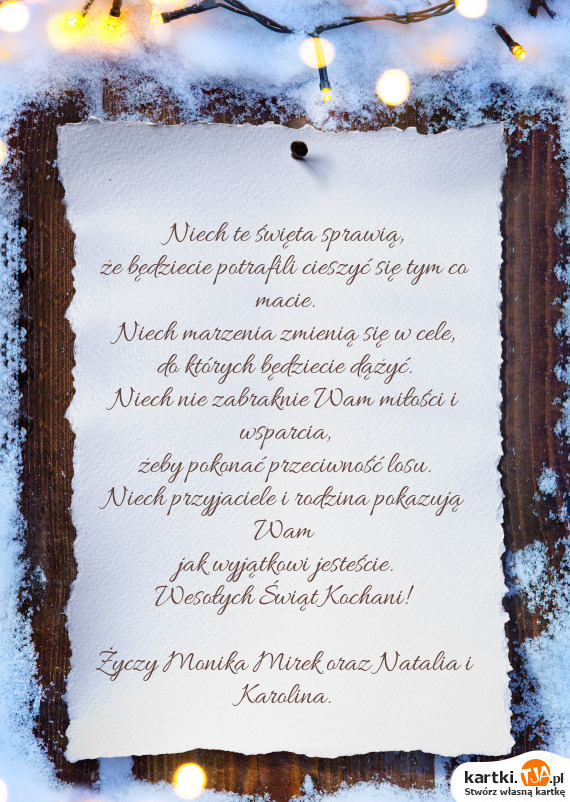 Niech te święta sprawią,
że będziecie potrafili cieszyć się tym co
macie.
Niech marzenia zmienią się w cele,
do których będziecie dążyć.
Niech nie zabraknie Wam miłości i
wsparcia,
żeby pokonać przeciwność losu.
Niech przyjaciele i rodzina pokazują
Wam
jak wyjątkowi jesteście.
Wesołych Świąt Kochani!
Życzy Monika Mirek oraz Natalia i
Karolina.
kartki.TJA.pl
Stwórz własną kartkę